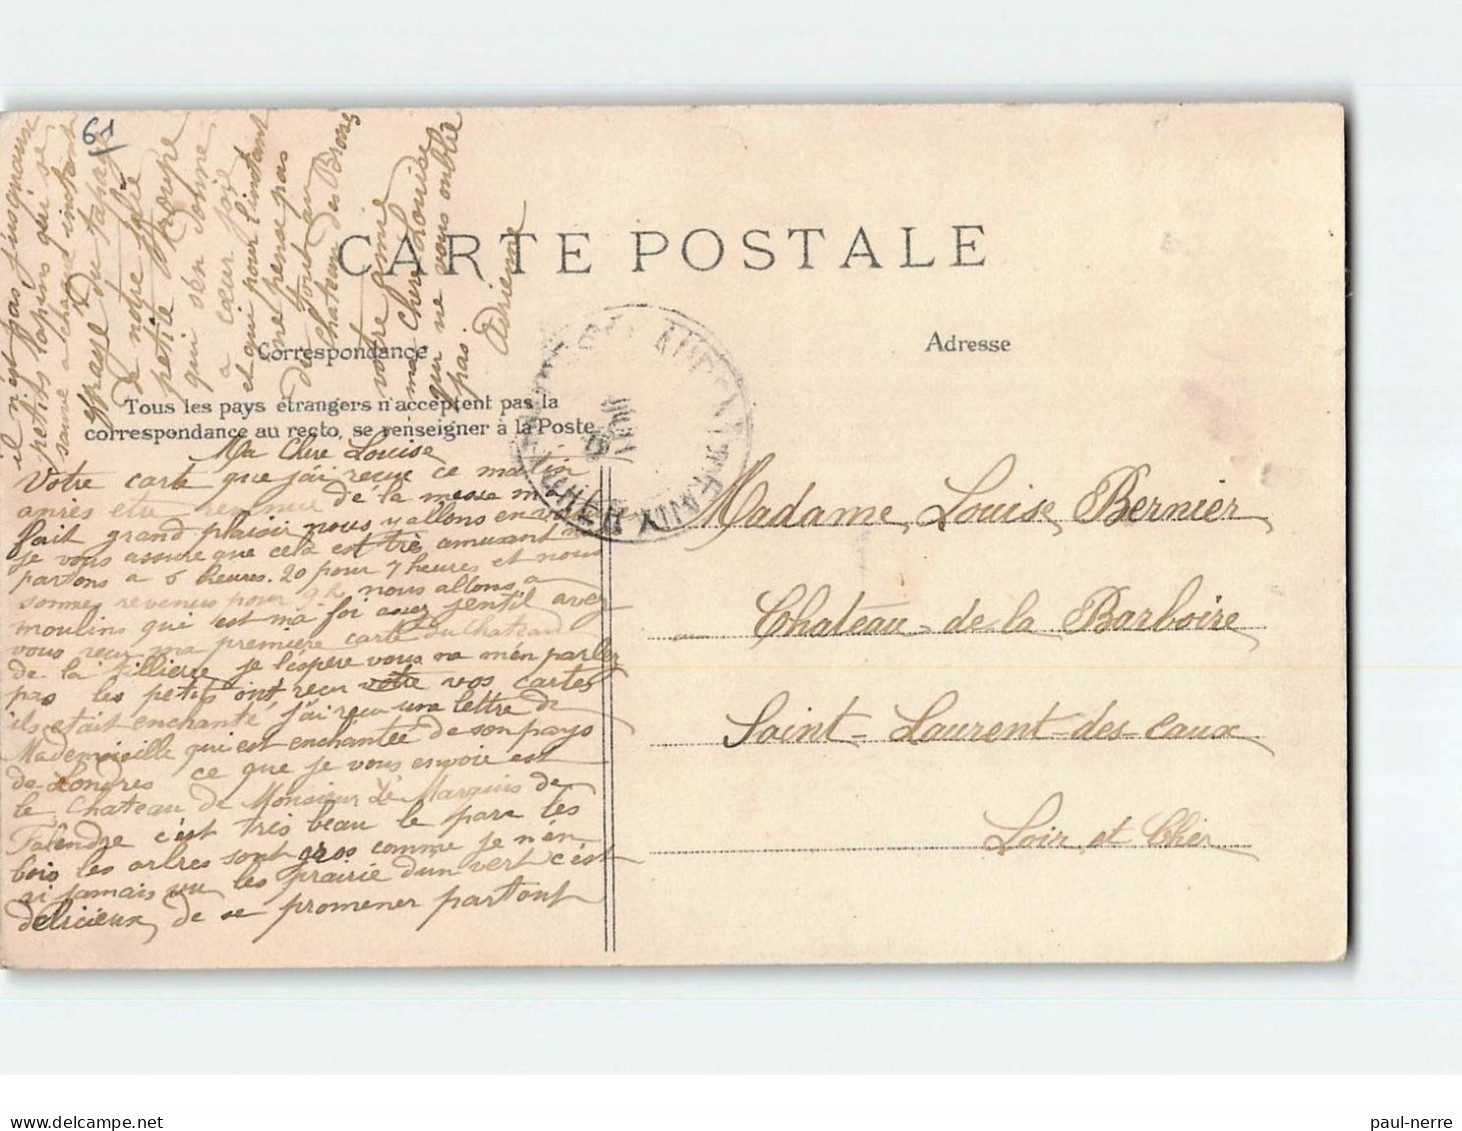 61
CARTE POSTALE
Correspondance
Adresse
Tous les pays étrangers n'acceptent pas la
correspondance au recto, se renseigner à la Poste
Ma Chere Louise
Votre carte que j'ai reçue ce matin
après etu revenue de la messe m'a
fait grand plaisir nous y allons en
je vous assure que cela est très amusant
partons a 6 heures. 20 pour 7 heures et nous
sommes revenus pour 9 h. nous allons a
moulins qui est ma foi assez jentil avez
vous reçu ma première carte du Chateau
de la je l'espère vous va m'en parlez
pas les petits ont reçu votre vos cartes
ils etait enchanté, j'ai reçu une lettre de
Mademoiselle qui est enchantée de son pays
de Londres ce que je vous envoie est
le Chateau de Monsieur Le Marquis de
Falendre c'est très beau le parc les
bois les arbres sont gros comme je n'en
ai jamais vu les prairie d'un vert c'est
delicieux de se promener partout
il n'est pas jusqu'aux
petits lapins qui se
sauve a chaque instant
effrayé du tapage
de notre folie
petite troupe
qui s'en donne
a cœur joie
et qui pour l'instant
ne pense pas
du tout au
chateau des Brosses
votre amie
ma chere Louise
qui ne vous oublie
pas.
Adrienne
Madame Louise Bernier
Chateau de la Barboire
Saint-Laurent-des-Eaux
Loir et Cher
paul-nerre